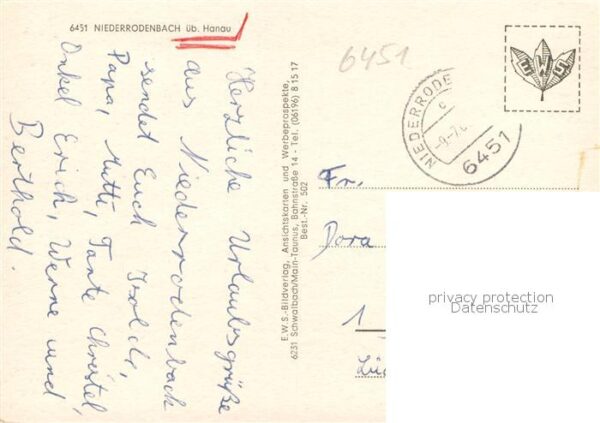 6451 NIEDERRODENBACH üb. Hanau
6451
NIEDERRODE
c
6451
E W S
Herzliche Urlaubsgrüße
aus Niederrodenbach
sendet Euch Isolde,
Papa, Mutti, Tante Christel,
Onkel Erich, Werne und
Berthold.
E.W.S.-Bildverlag, Ansichtskarten und Werbeprospekte,
6231 Schwalbach/Main-Taunus, Bahnstraße 14 - Tel. (06196) 8 15 17
Best.-Nr. 502
Fr.
Dora
1
privacy protection
Datenschutz